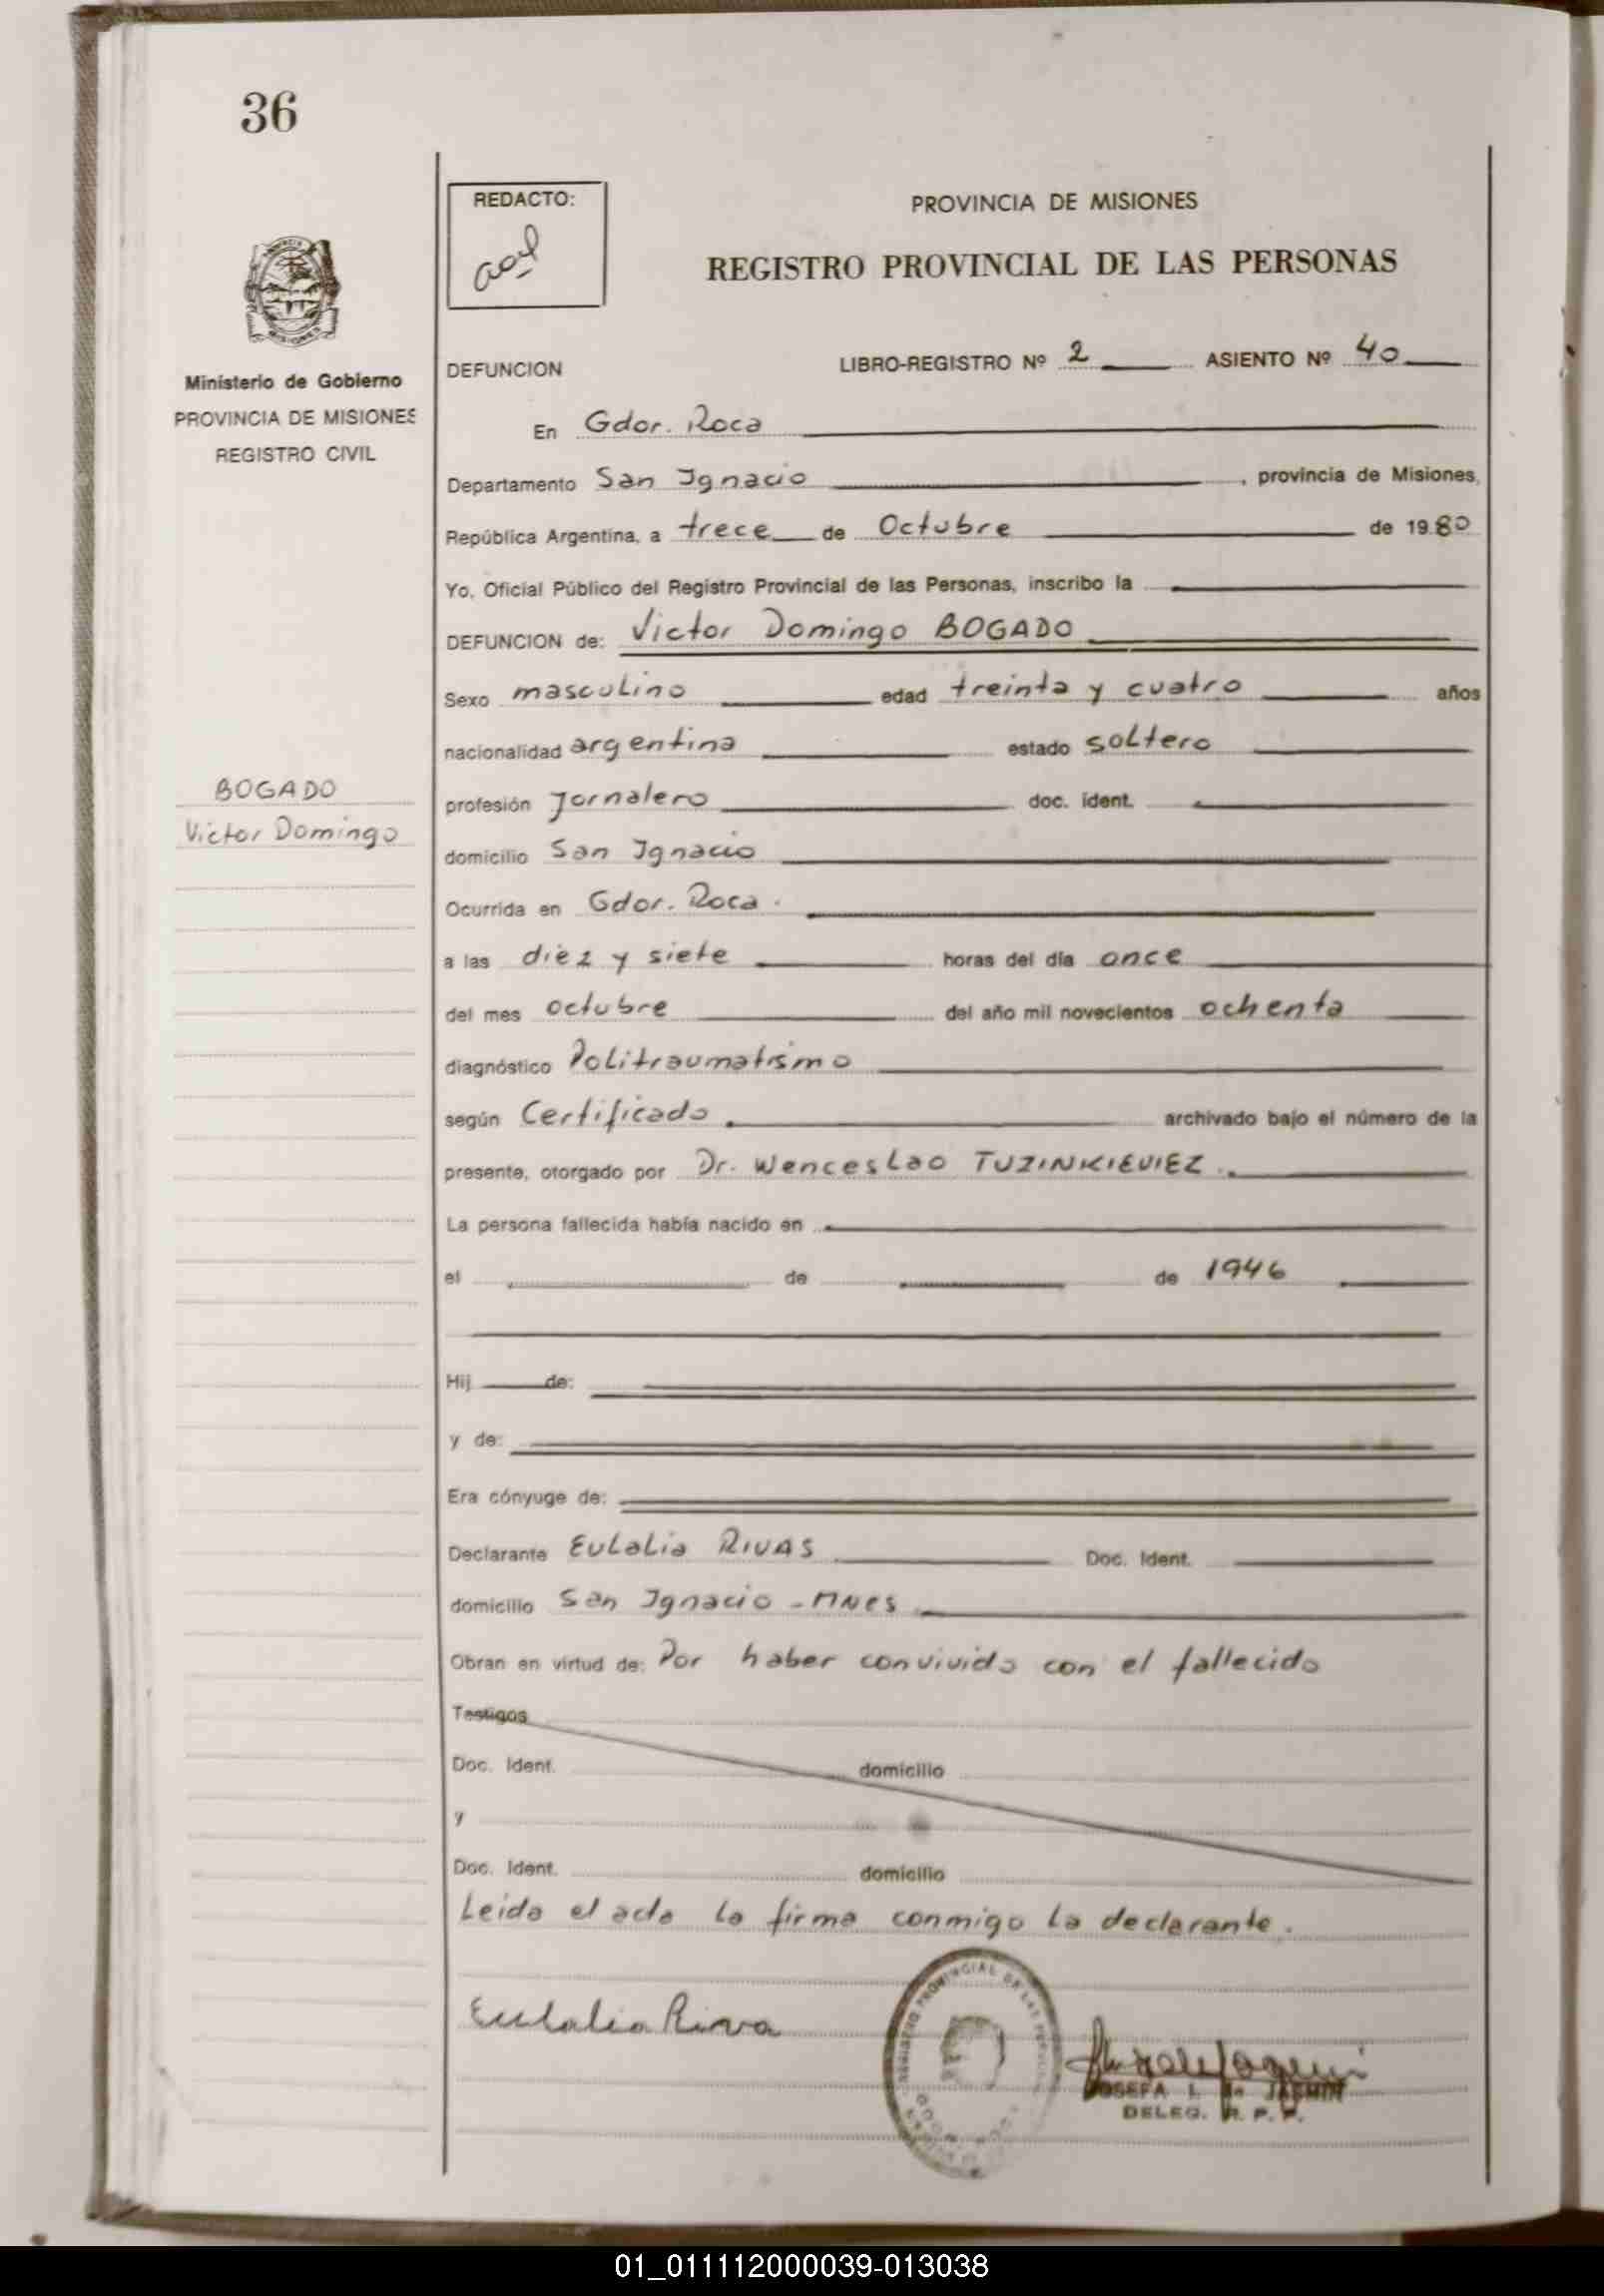 36
REDACTO:
PROVINCIA DE MISIONES
REGISTRO PROVINCIAL DE LAS PERSONAS
Ministerio de Gobierno
PROVINCIA DE MISIONES
REGISTRO CIVIL
DEFUNCION LIBRO-REGISTRO Nº 2 ASIENTO Nº 40
En Gdor. Roca
Departamento San Ignacio, provincia de Misiones,
República Argentina, a trece de Octubre de 1980
Yo, Oficial Público del Registro Provincial de las Personas, inscribo la
DEFUNCION de: Victor Domingo BOGADO
Sexo masculino edad treinta y cuatro años
nacionalidad argentina estado soltero
BOGADO
Victor Domingo
profesión Jornalero doc. ident.
domicilio San Ignacio
Ocurrida en Gdor. Roca.
a las diez y siete horas del día once
del mes octubre del año mil novecientos ochenta
diagnóstico Politraumatismo
según Certificado archivado bajo el número de la
presente, otorgado por Dr. Wenceslao TUZINKIEVIEZ
La persona fallecida había nacido en
el de de 1946
Hij de:
y de:
Era cónyuge de:
Declarante Eulalia RIVAS Doc. Ident.
domicilio San Ignacio - MNES
Obran en virtud de: Por haber convivido con el fallecido
Testigos
Doc. Ident. domicilio
y
Doc. Ident. domicilio
Leida el acta la firma conmigo la declarante.
Eulalia Riva
REGISTRO PROVINCIAL DE LAS
JOSEFA I. de
DELEG. R. P. P.
01_011112000039-013038